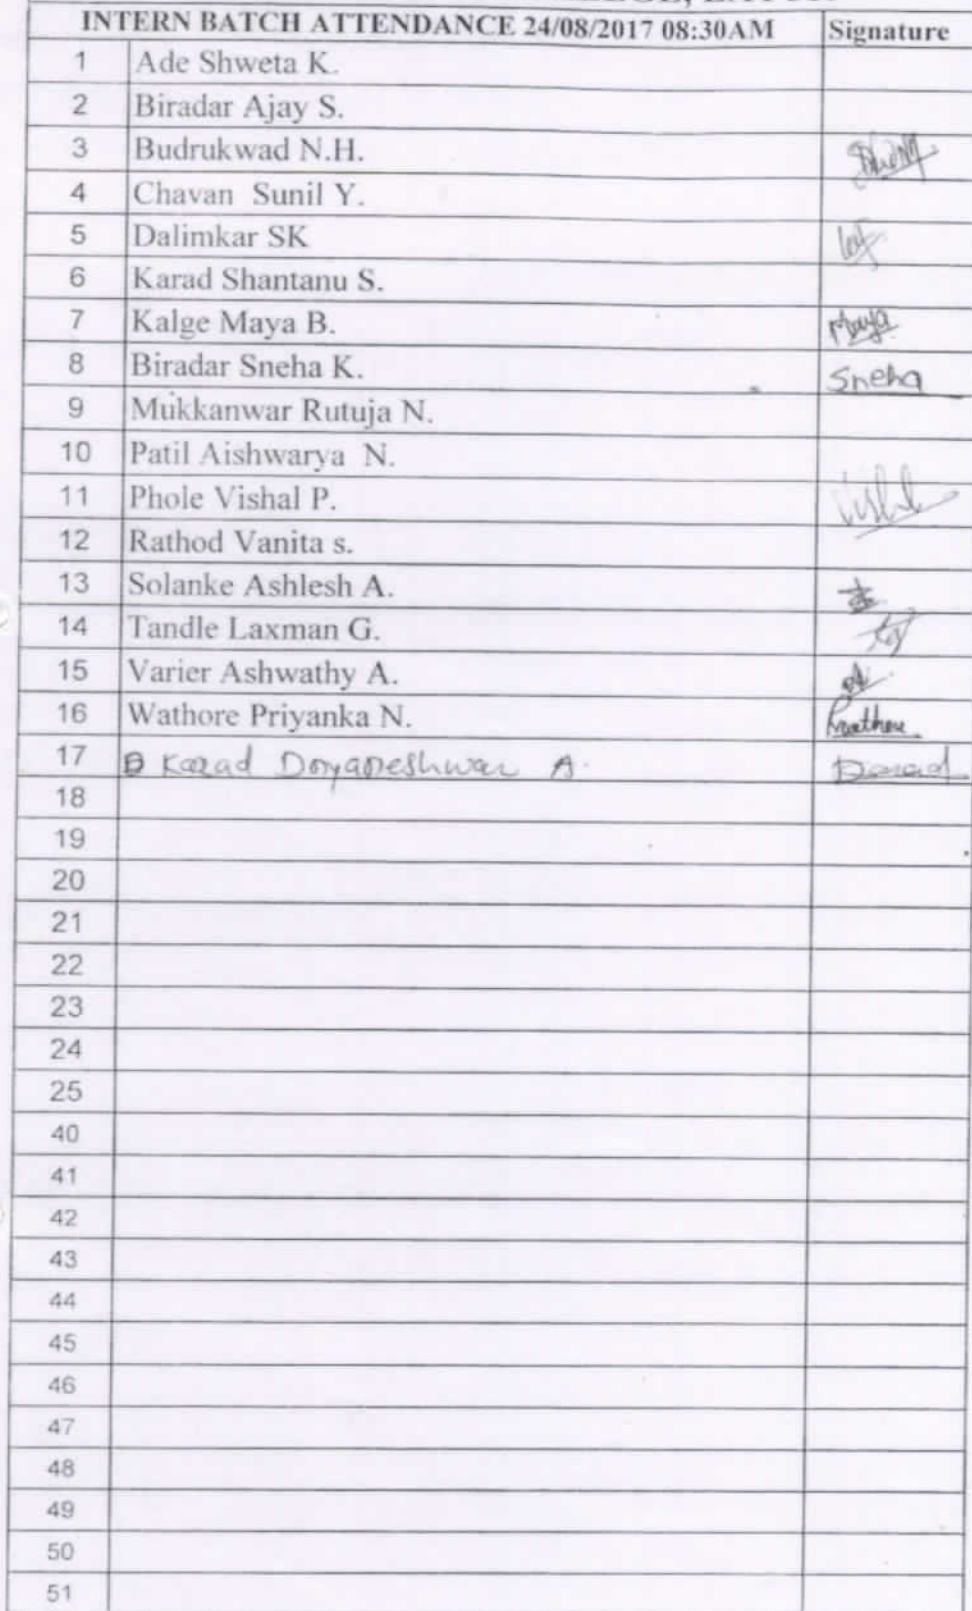 INTERN BATCH ATTENDANCE 24/08/2017 08:30AM Signature
1 Ade Shweta K.
2 Biradar Ajay S.
3 Budrukwad N.H.
4 Chavan Sunil Y.
5 Dalimkar SK
6 Karad Shantanu S.
7 Kalge Maya B. Maya
8 Biradar Sneha K. Sneha
9 Mukkanwar Rutuja N.
10 Patil Aishwarya N.
11 Phole Vishal P. Vishal
12 Rathod Vanita s.
13 Solanke Ashlesh A.
14 Tandle Laxman G.
15 Varier Ashwathy A.
16 Wathore Priyanka N.
17 Karad Dnyaneshwar A.
18
19
20
21
22
23
24
25
40
41
42
43
44
45
46
47
48
49
50
51